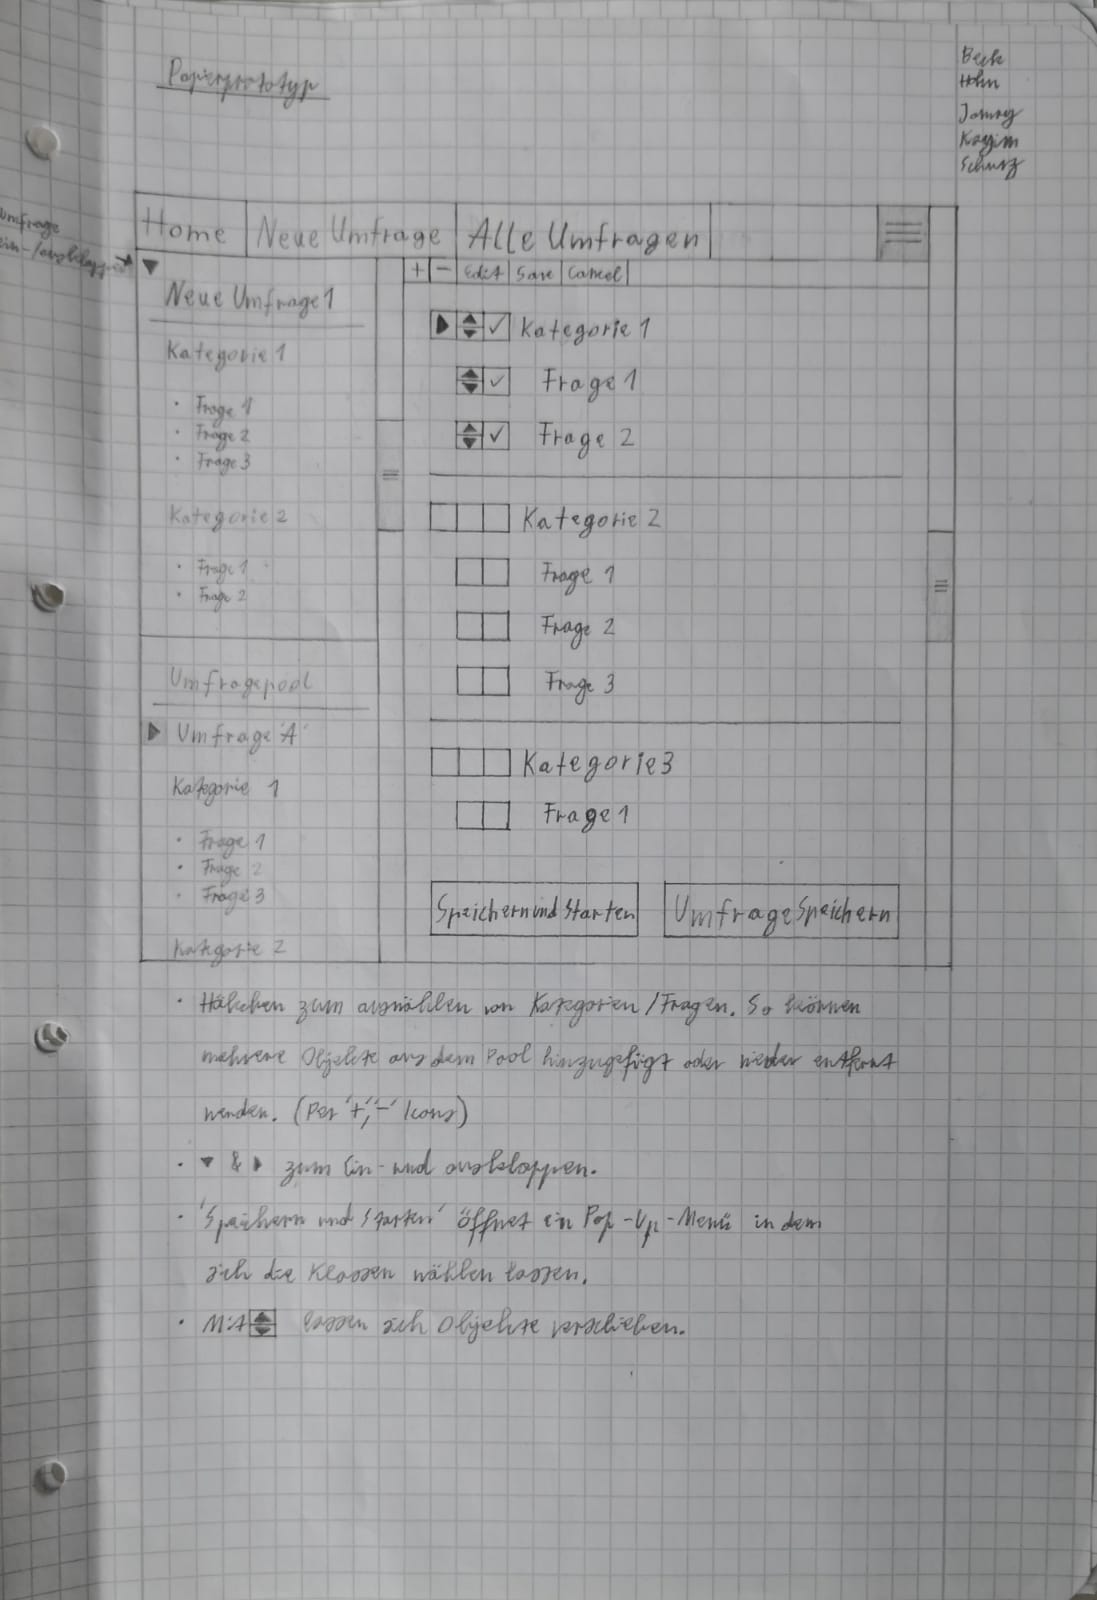 Papierprototyp
Beck
Hohn
Schurz
Umfrage
ein-/ausklappen
Home Neue Umfrage Alle Umfragen
+ - Edit Save Cancel
Neue Umfrage 1
Kategorie 1
• Frage 1
• Frage 2
• Frage 3
Kategorie 2
• Frage 1
• Frage 2
Umfragepool
Umfrage 'A'
Kategorie 1
• Frage 1
• Frage 2
• Frage 3
Kategorie 2
Kategorie 1
Frage 1
Frage 2
Kategorie 2
Frage 1
Frage 2
Frage 3
Kategorie 3
Frage 1
Speichern und Starten Umfrage Speichern
• Häkchen zum auswählen von Kategorien / Fragen. So können
mehrere Objekte aus dem Pool hinzugefügt oder wieder entfernt
werden. (Per '+', '-' Icons)
• ▼ & ▶ zum Ein- und ausklappen.
• 'Speichern und Starten' öffnet ein Pop-Up-Menü in dem
sich die Klassen wählen lassen.
• Mit lassen sich Objekte verschieben.